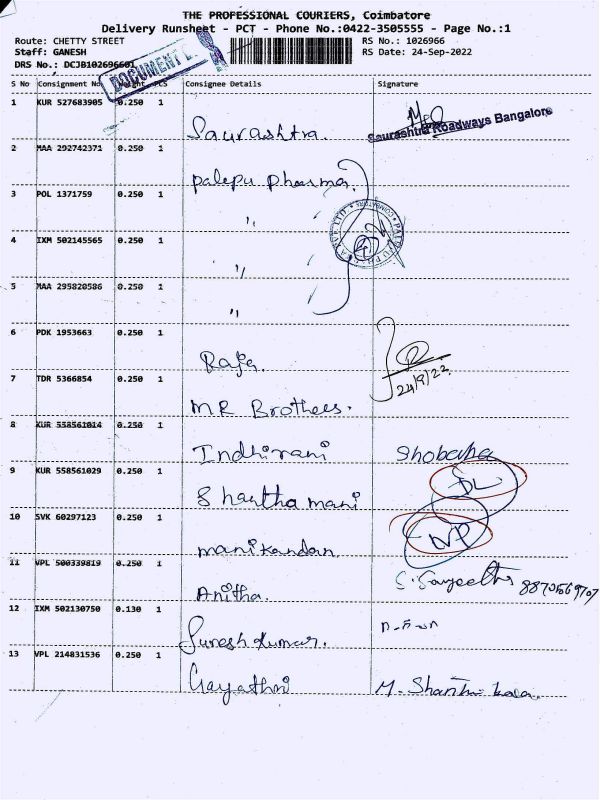 THE PROFESSIONAL COURIERS, Coimbatore
Delivery Runsheet - PCT - Phone No.:0422-3505555 - Page No.:1
Route: CHETTY STREET RS No.: 1026966
Staff: GANESH RS Date: 24-Sep-2022
DRS No.: DCJB102696601
DOCUMENT
S No Consignment No PCS Consignee Details Signature
1 KUR 527683905 0.250 1 Saurashtra. Saurashtra Roadways Bangalore
2 MAA 292742371 0.250 1 palepu pharma.
3 POL 1371759 0.250 1 "
4 IXM 502145565 0.250 1 "
5 MAA 295820586 0.250 1 "
6 PDK 1953663 0.250 1 Raja. 24/9/22
7 TDR 5366854 0.250 1 MR Brothers.
8 KUR 558561014 0.250 1 Indhirani Shobana
9 KUR 558561029 0.250 1 Shanthamani
10 SVK 60297123 0.250 1 manikandan
11 VPL 500339819 0.250 1 Anitha.
12 IXM 502130750 0.130 1 Suresh kumar.
13 VPL 214831536 0.250 1 Gayathri